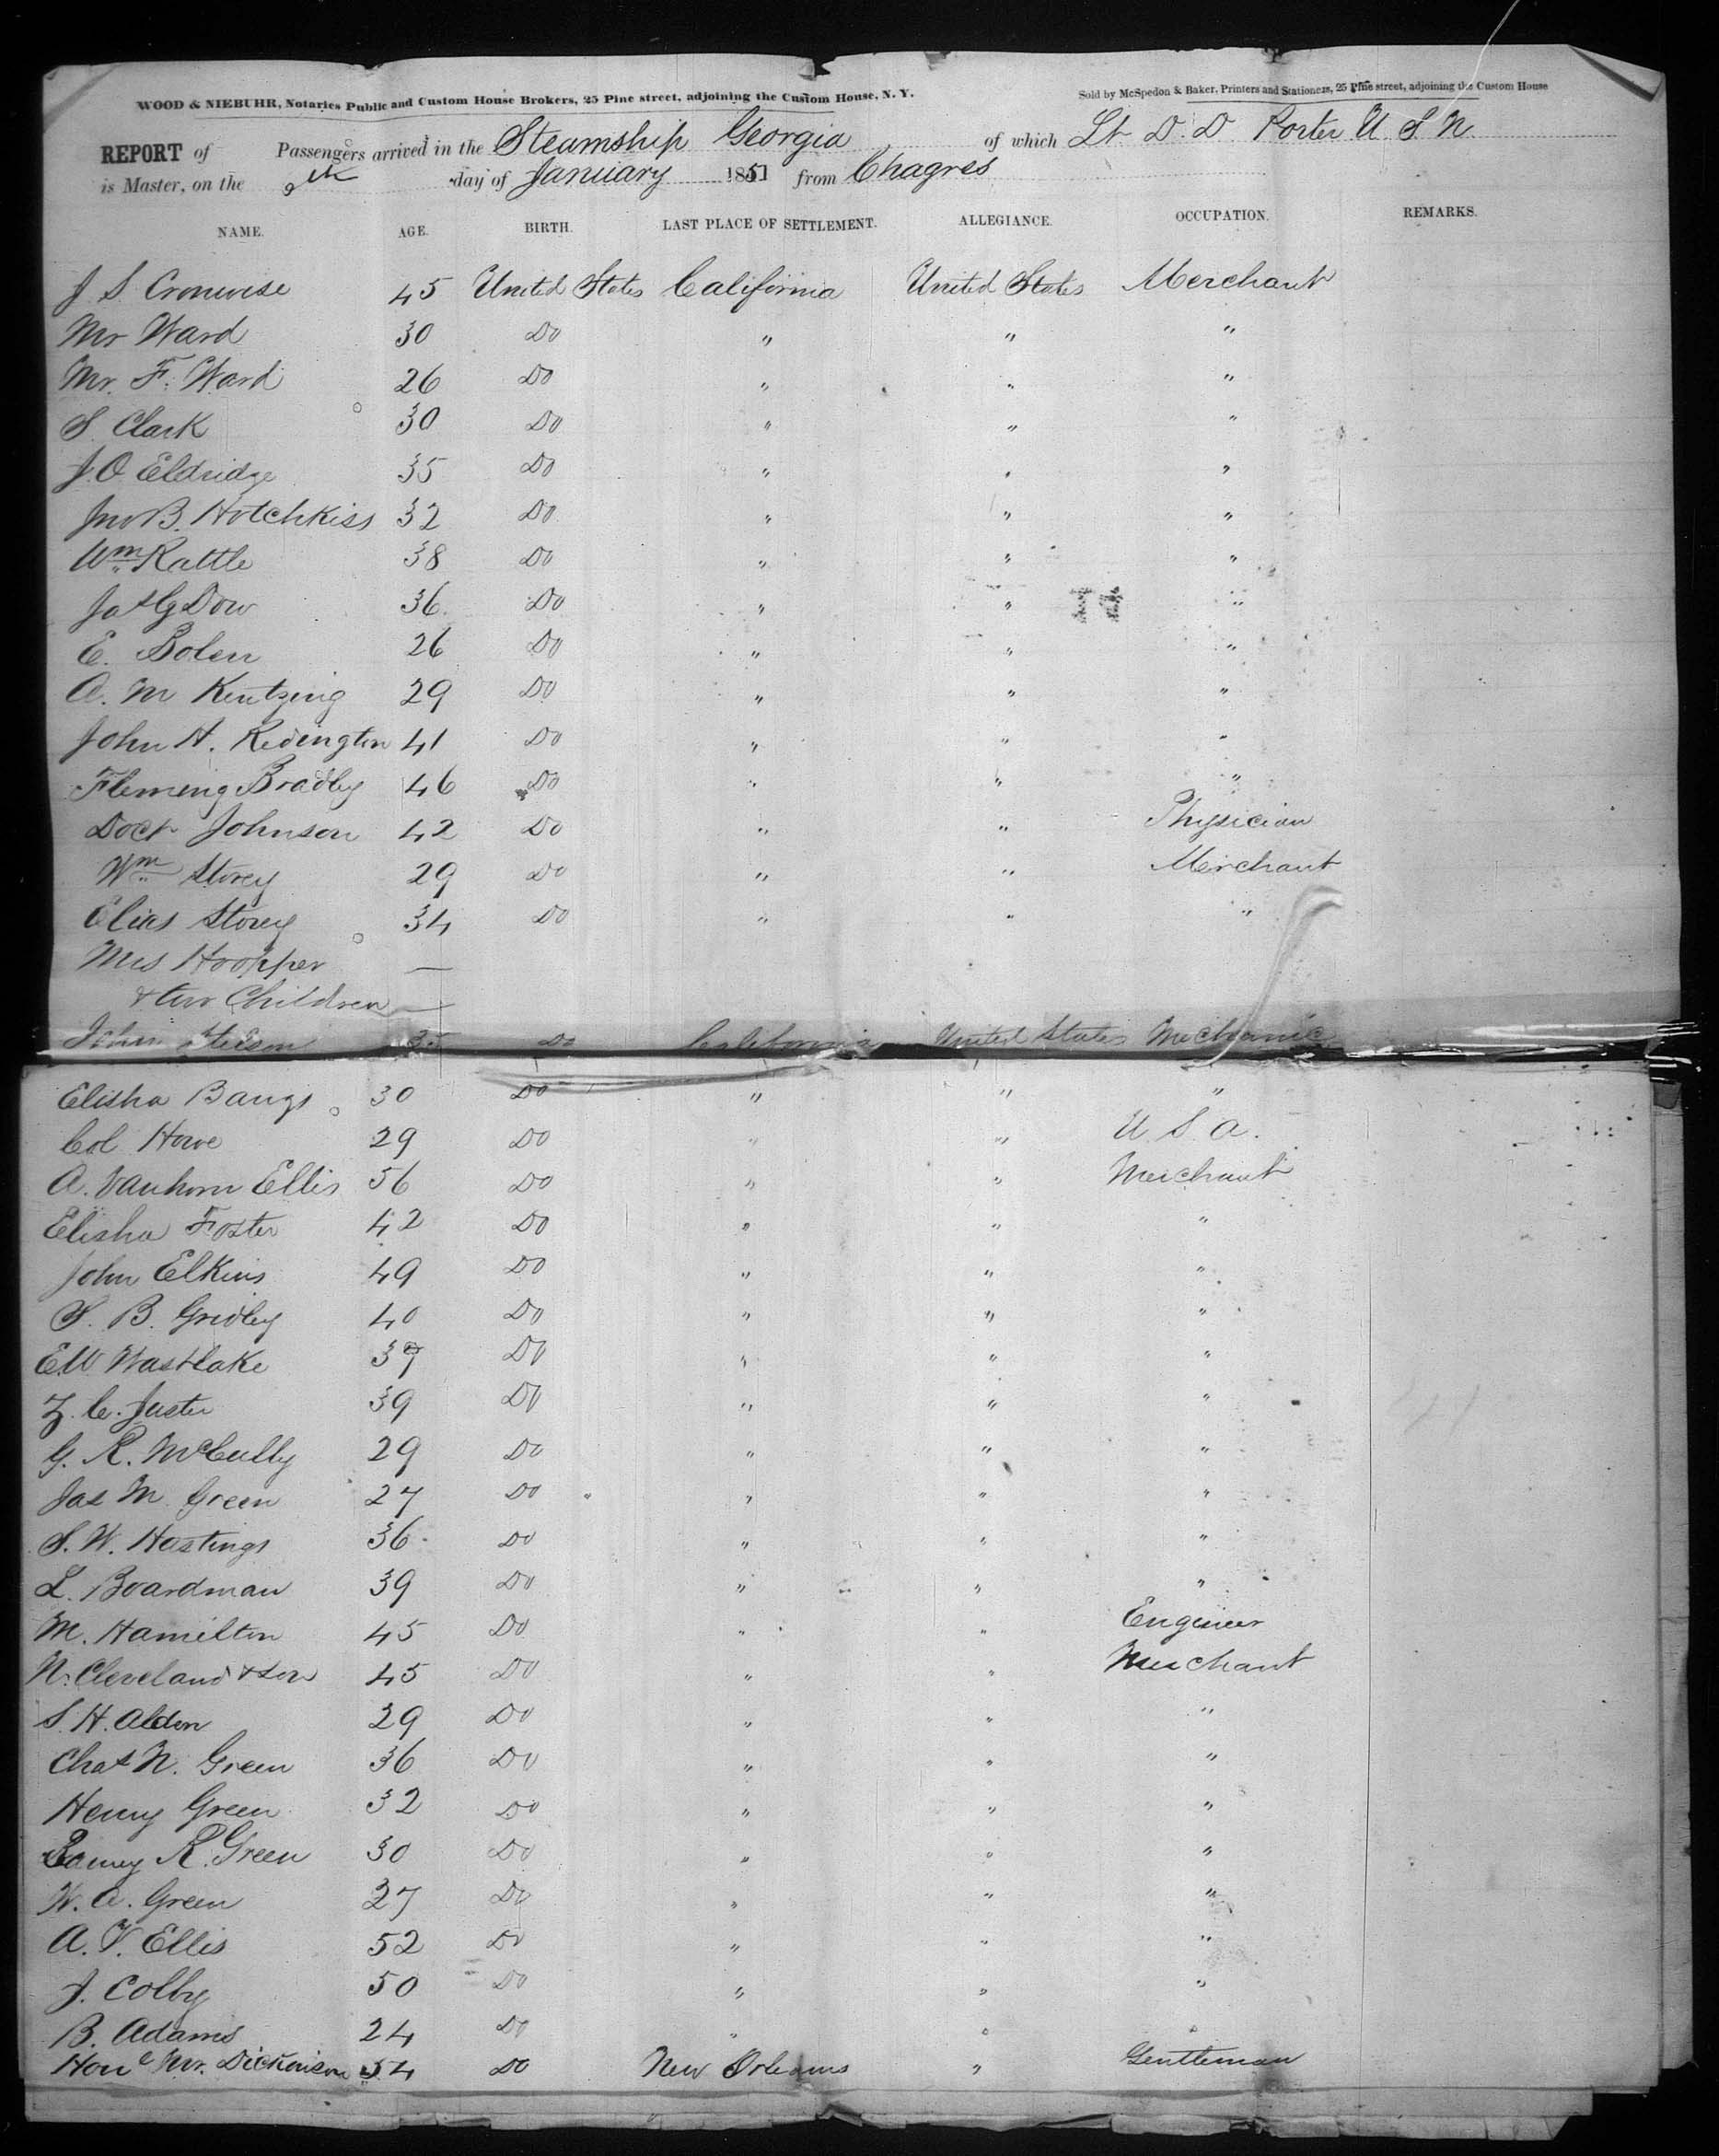 WOOD & NIEBUHR, Notaries Public and Custom House Brokers, 25 Pine street, adjoining the Custom House, N. Y.
Sold by McSpedon & Baker, Printers and Stationers, 25 Pine street, adjoining the Custom House
REPORT of Passengers arrived in the Steamship Georgia of which Lt D. D. Porter U S N
is Master, on the 9th day of January 1851 from Chagres
NAME. AGE. BIRTH. LAST PLACE OF SETTLEMENT. ALLEGIANCE. OCCUPATION. REMARKS.
J S Cronwise 45 United States California United States Merchant
Mr Ward 30 Do " " "
Mr. F. Ward 26 Do " " "
S. Clark 30 Do " " "
J. O Eldridge 35 Do " " "
Jno B. Hotchkiss 32 Do " " "
Wm Rattle 38 Do " " "
Jas G Dow 36 Do " " "
E. Bolen 26 Do " " "
A. M Kentzing 29 Do " " "
John H. Redington 41 Do " " "
Fleming Bradley 46 Do " " "
Doct Johnson 42 Do " " Physician
Wm Storey 29 Do " " Merchant
Elias Storey 34 Do " " "
Mrs Hoopper —
& two Children —
John 35 Do California United States Mechanic
Elisha Bangs 30 Do " " "
Col Howe 29 Do " " U. S. A.
A. Vanhorn Ellis 56 Do " " Merchant
Elisha Foster 42 Do " " "
John Elkins 49 Do " " "
S. B. Gridley 40 Do " " "
E. W Wastlake 37 Do " " "
Z. C. Juster 39 Do " " "
G. R. McCully 29 Do " " "
Jas M Green 27 Do " " "
S. W. Hastings 36 Do " " "
L. Boardman 39 Do " " "
M. Hamilton 45 Do " " Engineer
N. Cleveland & son 45 Do " " Merchant
S. H. Alden 29 Do " " "
Chas N. Green 36 Do " " "
Henry Green 32 Do " " "
R. Green 30 Do " " "
W. A. Green 27 Do " " "
A. V. Ellis 52 Do " " "
J. Colby 50 Do " " "
B. Adams 24 Do " " "
Hone Mr. Dickinson 54 Do New Orleans " Gentleman